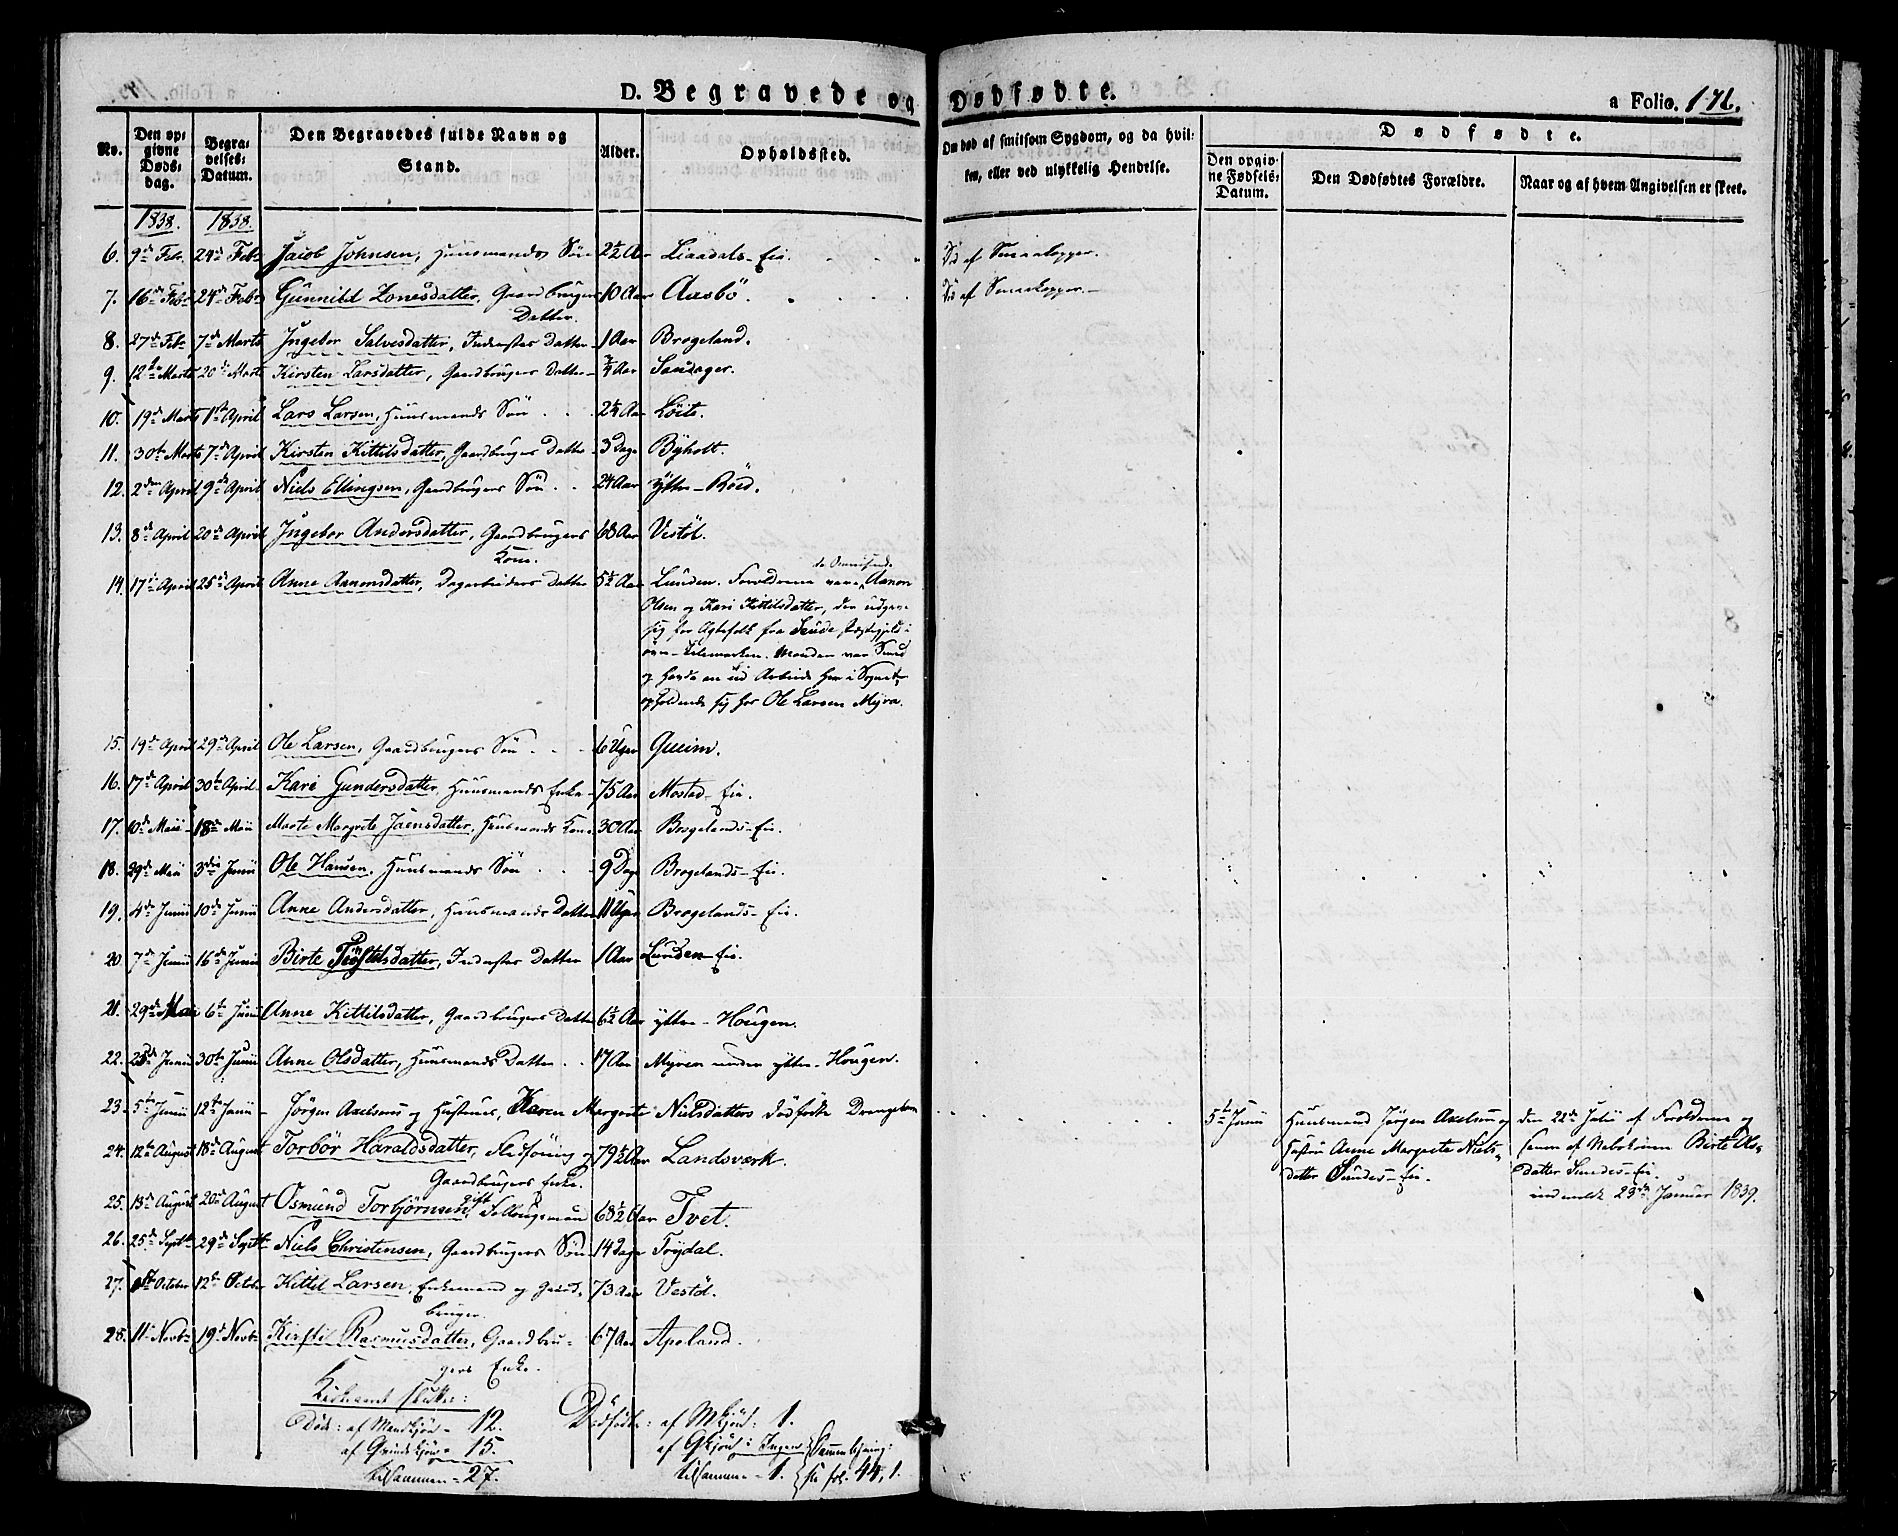 D. Begravede og Dødfødte.
a Folio. 171.
No.
Den opgivne Døds-dag.
Begravelses-Datum.
Den Begravedes fulde Navn og Stand.
Alder.
Opholdssted.
Om død af smitsom Sygdom, og da hvilken, eller ved ulykkelig Hendelse.
Dødfødte.
Den opgivne Fødsels-Datum.
Den Dødfødtes Forældre.
Naar og af hvem Angivelsen er skeet.
1838. 1838.
6. 9de Febr. 24de Febr Jacob Johnsen, Huusmands Søn 2½ Aar Liaadals-Eie. Død af Smaakopper.
7. 16de Febr 24de Febr Gunnild Lonesdatter, Gaardbrugers 10 Aar Ausbö. Død af Smaakopper.
Datter.
8. 27de Febr 7de Marts Ingebor Salvesdatter, Inderstes Datter 1 Aar Brogeland.
9. 12te Marts 20de Marts Kirsten Larsdatter, Gaardbrugers Datter ¾ Aar Sandager.
10. 19de Marts 1ste April Lars Larsen, Huusmands Søn 2¼ Aar Löite.
11. 30te Marts 7de April Kirsten Kittilsdatter, Gaardbrugers Datter 3 Dage Byholt.
12. 2den April 9de April Niels Ellingsen, Gaardbrugers Søn 24 Aar Ytre-Röed.
13. 8de April 20de April Ingebor Andersdatter, Gaardbrugers 68 Aar Vestöl.
Kone.
14. 17de April 25de April Anne Aanonsdatter, Dagarbeiders Datter 5½ Aar Lunden. Forældrene vare Aanon
Olsen og Kari Kittilsdatter, der udgave
sig for Ægtefolk fra Præstegjeld i
Øvre-Tellemarken. Manden var Smed
og havde en Tid Arbeide her i Sognet,
opholdende sig hos Ole Larsen Myra.
15. 19de April 29de April Ole Larsen, Gaardbrugers Søn 6 Uger Queim.
16. 17de April 30te April Kari Gundersdatter, Huusmands Enke 75 Aar Mostad-Eie.
17. 10de Maii 18de Maii Marte Margrete Jaensdatter, Huusmands Kone 30 Aar Brogelands-Eie.
18. 29de Maii 3die Junii Ole Hansen, Huusmands Søn 9 Dage Brogelands-Eie.
19. 4de Junii 10de Junii Anne Andersdatter, Huusmands Datter 11 Uger Brogelands-Eie.
20 7de Junii 16de Junii Birte datter, Inderstes Datter 1 Aar Lunden-Eie.
21. 29de Mai 6te Junii Anne Kittilsdatter, Gaardbrugers Datter 6½ Aar Yttre-Hougen.
22. Junii 30te Junii Anne Olsdatter, Huusmands Datter 17 Aar Myren under yttre-Hougen.
23. 5te Junii 12te Junii Jörgen Axelsens og Hustrues, Karen Margrete Nielsdatters dødfødte Drengebarn
5te Junii
Huusmand Jörgen Axelsen og
Hustru Anne Margrete Niels-
datter Sundes-Eie.
den 22de Julii af Forældrene og
senere af Nabokonen Birte Ols-
datter Sundes-Eie.
indmeldt 23de Januar 1839.
24. 12te August 18de August Torbör Haraldsdatter, og 79½ Aar Landsværk.
Gaardbrugers Enke.
25. 13de August 20de August Osmund Torbjörnsen, gift Follaugsmand 68½ Aar Tvet.
26. 25de Septbr 29de Septbr Niels Christensen, Gaardbrugers Søn 14 Dage Trydal.
27. October 12te Octobr Kittil Larsen, Enkemand og Gaard- 73 Aar Vestöl.
bruger.
28. 11te Novbr 19de Novbr Kirstil Rasmusdatter, Gaardbru- 67 Aar Apeland.
gers Enke.
Kirkeaaret slutter:
Døde: af Mandkjön - 12.
af Qvindekjön - 15.
tilsammen - 27.
Dødfødte: af Mkjön: 1.
af Qkjön: Ingen
tilsammen - 1. Sammenligning:
see fol. 44, 1.